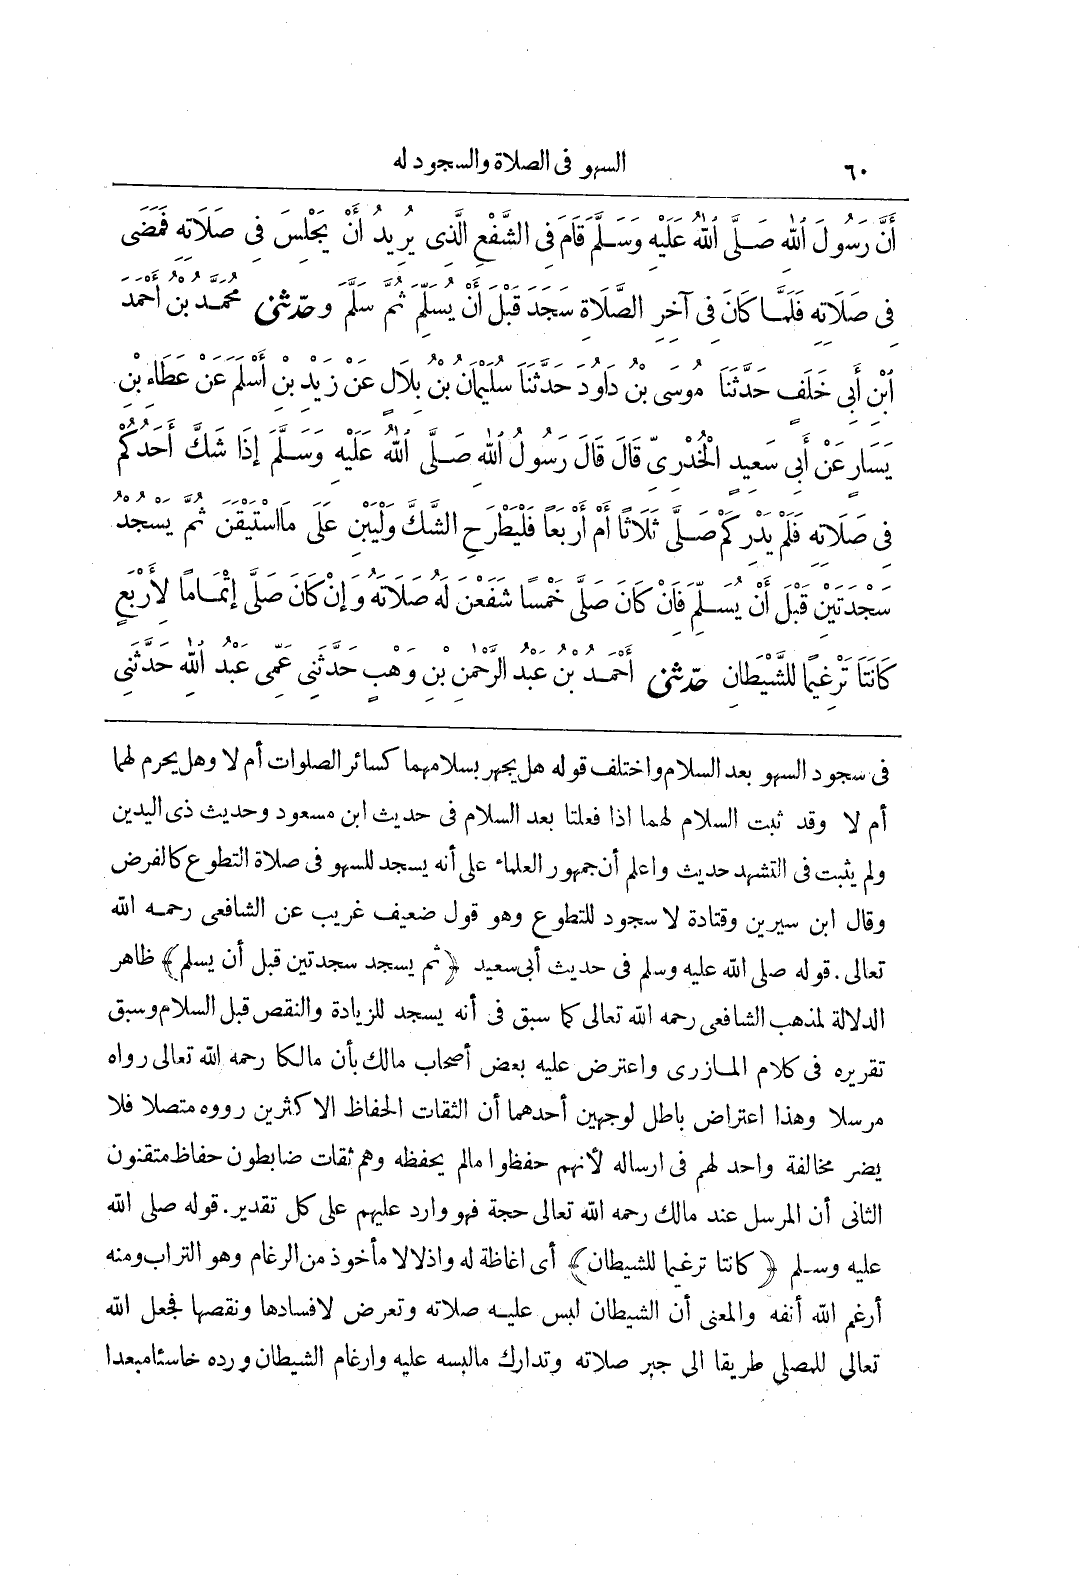 ٦٠ السهو فى الصلاة والسجود له
أَنَّ رَسُولَ اللهِ صَلَّى اللهُ عَلَيْهِ وَسَلَّمَ قَامَ فِى الشَّفْعِ الَّذِى يُرِيدُ أَنْ يَجْلِسَ فِى صَلَاتِهِ فَمَضَى
فِى صَلَاتِهِ فَلَمَّا كَانَ فِى آخِرِ الصَّلَاةِ سَجَدَ قَبْلَ أَنْ يُسَلِّمَ ثُمَّ سَلَّمَ وحَدَّثَنِى مُحَمَّدُ بْنُ أَحْمَدَ
ابْنِ أَبِى خَلَفٍ حَدَّثَنَا مُوسَى بْنُ دَاوُدَ حَدَّثَنَا سُلَيْمَانُ بْنُ بِلَالٍ عَنْ زَيْدِ بْنِ أَسْلَمَ عَنْ عَطَاءِ بْنِ
يَسَارٍ عَنْ أَبِى سَعِيدٍ الْخُدْرِىِّ قَالَ قَالَ رَسُولُ اللهِ صَلَّى اللهُ عَلَيْهِ وَسَلَّمَ إِذَا شَكَّ أَحَدُكُمْ
فِى صَلَاتِهِ فَلَمْ يَدْرِ كَمْ صَلَّى ثَلَاثًا أَمْ أَرْبَعًا فَلْيَطْرَحِ الشَّكَّ وَلْيَبْنِ عَلَى مَا اسْتَيْقَنَ ثُمَّ يَسْجُدُ
سَجْدَتَيْنِ قَبْلَ أَنْ يُسَلِّمَ فَإِنْ كَانَ صَلَّى خَمْسًا شَفَعْنَ لَهُ صَلَاتَهُ وَإِنْ كَانَ صَلَّى إِتْمَامًا لِأَرْبَعٍ
كَانَتَا تَرْغِيمًا لِلشَّيْطَانِ حَدَّثَنِى أَحْمَدُ بْنُ عَبْدِ الرَّحْمٰنِ بْنِ وَهْبٍ حَدَّثَنِى عَمِّى عَبْدُ اللهِ حَدَّثَنِى
فى سجود السهو بعد السلام واختلف قوله هل يجهر بسلامهما كسائر الصلوات أم لا وهل يحرم لهما
أم لا وقد ثبت السلام لهما اذا فعلتا بعد السلام فى حديث ابن مسعود وحديث ذى اليدين
ولم يثبت فى التشهد حديث واعلم أن جمهور العلماء على أنه يسجد للسهو فى صلاة التطوع كالفرض
وقال ابن سيرين وقتادة لا سجود للتطوع وهو قول ضعيف غريب عن الشافعى رحمه الله
تعالى. قوله صلى الله عليه وسلم فى حديث أبى سعيد ﴿ثم يسجد سجدتين قبل أن يسلم﴾ ظاهر
الدلالة لمذهب الشافعى رحمه الله تعالى كما سبق فى أنه يسجد للزيادة والنقص قبل السلام وسبق
تقريره فى كلام المازرى واعترض عليه بعض أصحاب مالك بأن مالكا رحمه الله تعالى رواه
مرسلا وهذا اعتراض باطل لوجهين أحدهما أن الثقات الحفاظ الاكثرين رووه متصلا فلا
يضر مخالفة واحد لهم فى ارساله لأنهم حفظوا مالم يحفظه وهم ثقات ضابطون حفاظ متقنون
الثانى أن المرسل عند مالك رحمه الله تعالى حجة فهو وارد عليهم على كل تقدير. قوله صلى الله
عليه وسلم ﴿كانتا ترغيما للشيطان﴾ أى اغاظة له واذلالا مأخوذ من الرغام وهو التراب ومنه
أرغم الله أنفه والمعنى أن الشيطان لبس عليه صلاته وتعرض لافسادها ونقصها فجعل الله
تعالى للمصلى طريقا الى جبر صلاته وتدارك مالبسه عليه وارغام الشيطان ورده خاسئا مبعدا